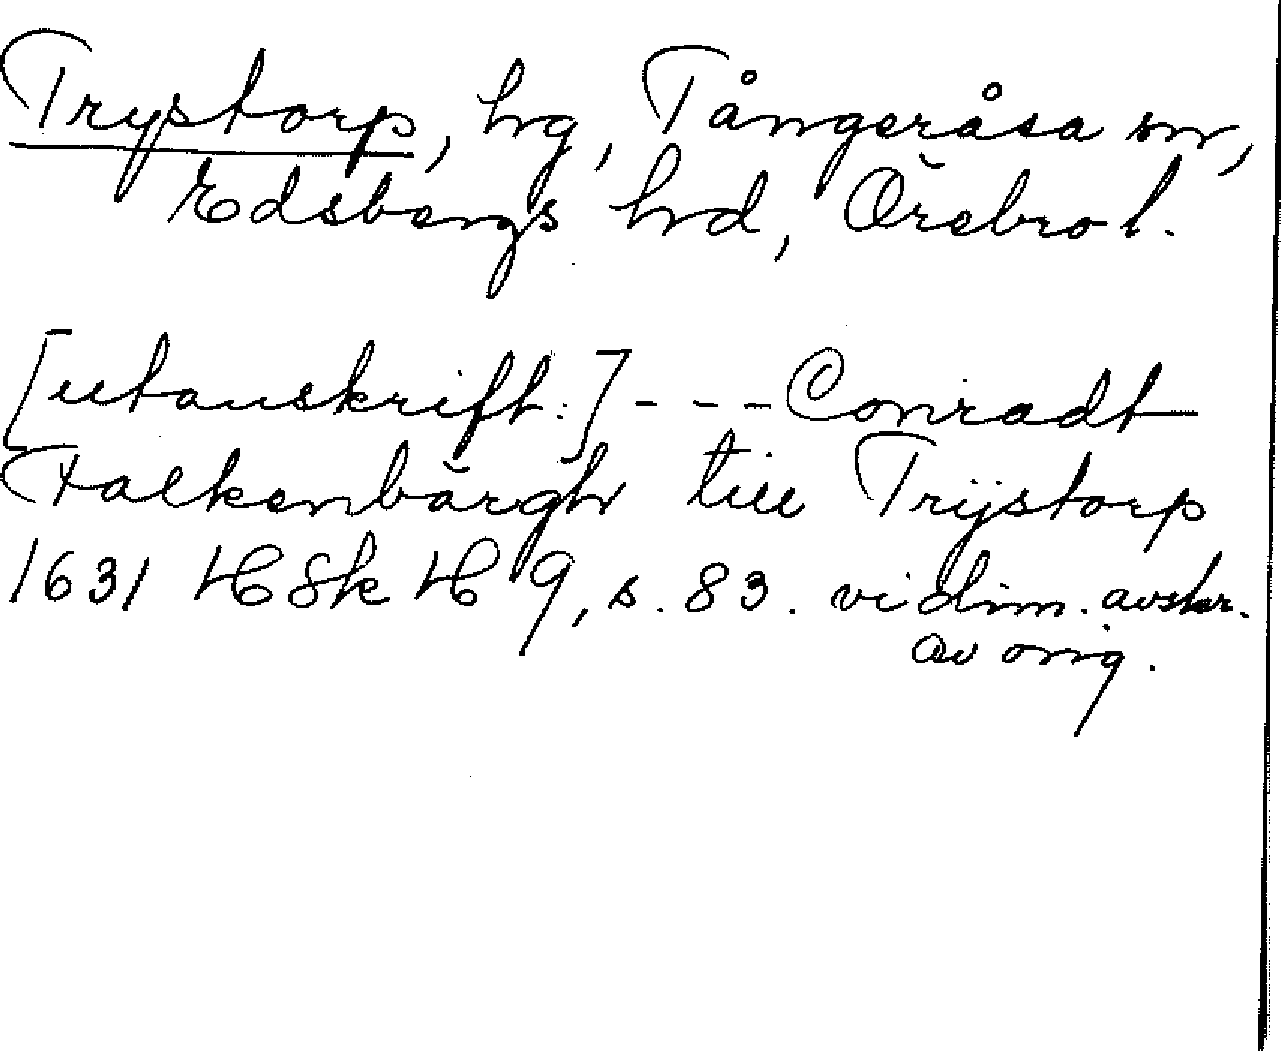 Trystorp, hg, Tångeråsa sn,
Edsbergs hrd, Örebro l.
[utanskrift:] - - - Conradt
Falkenbärgh till Trÿstorp
1631 HSk H 9, s. 83. vidim. avskr.
av orig.